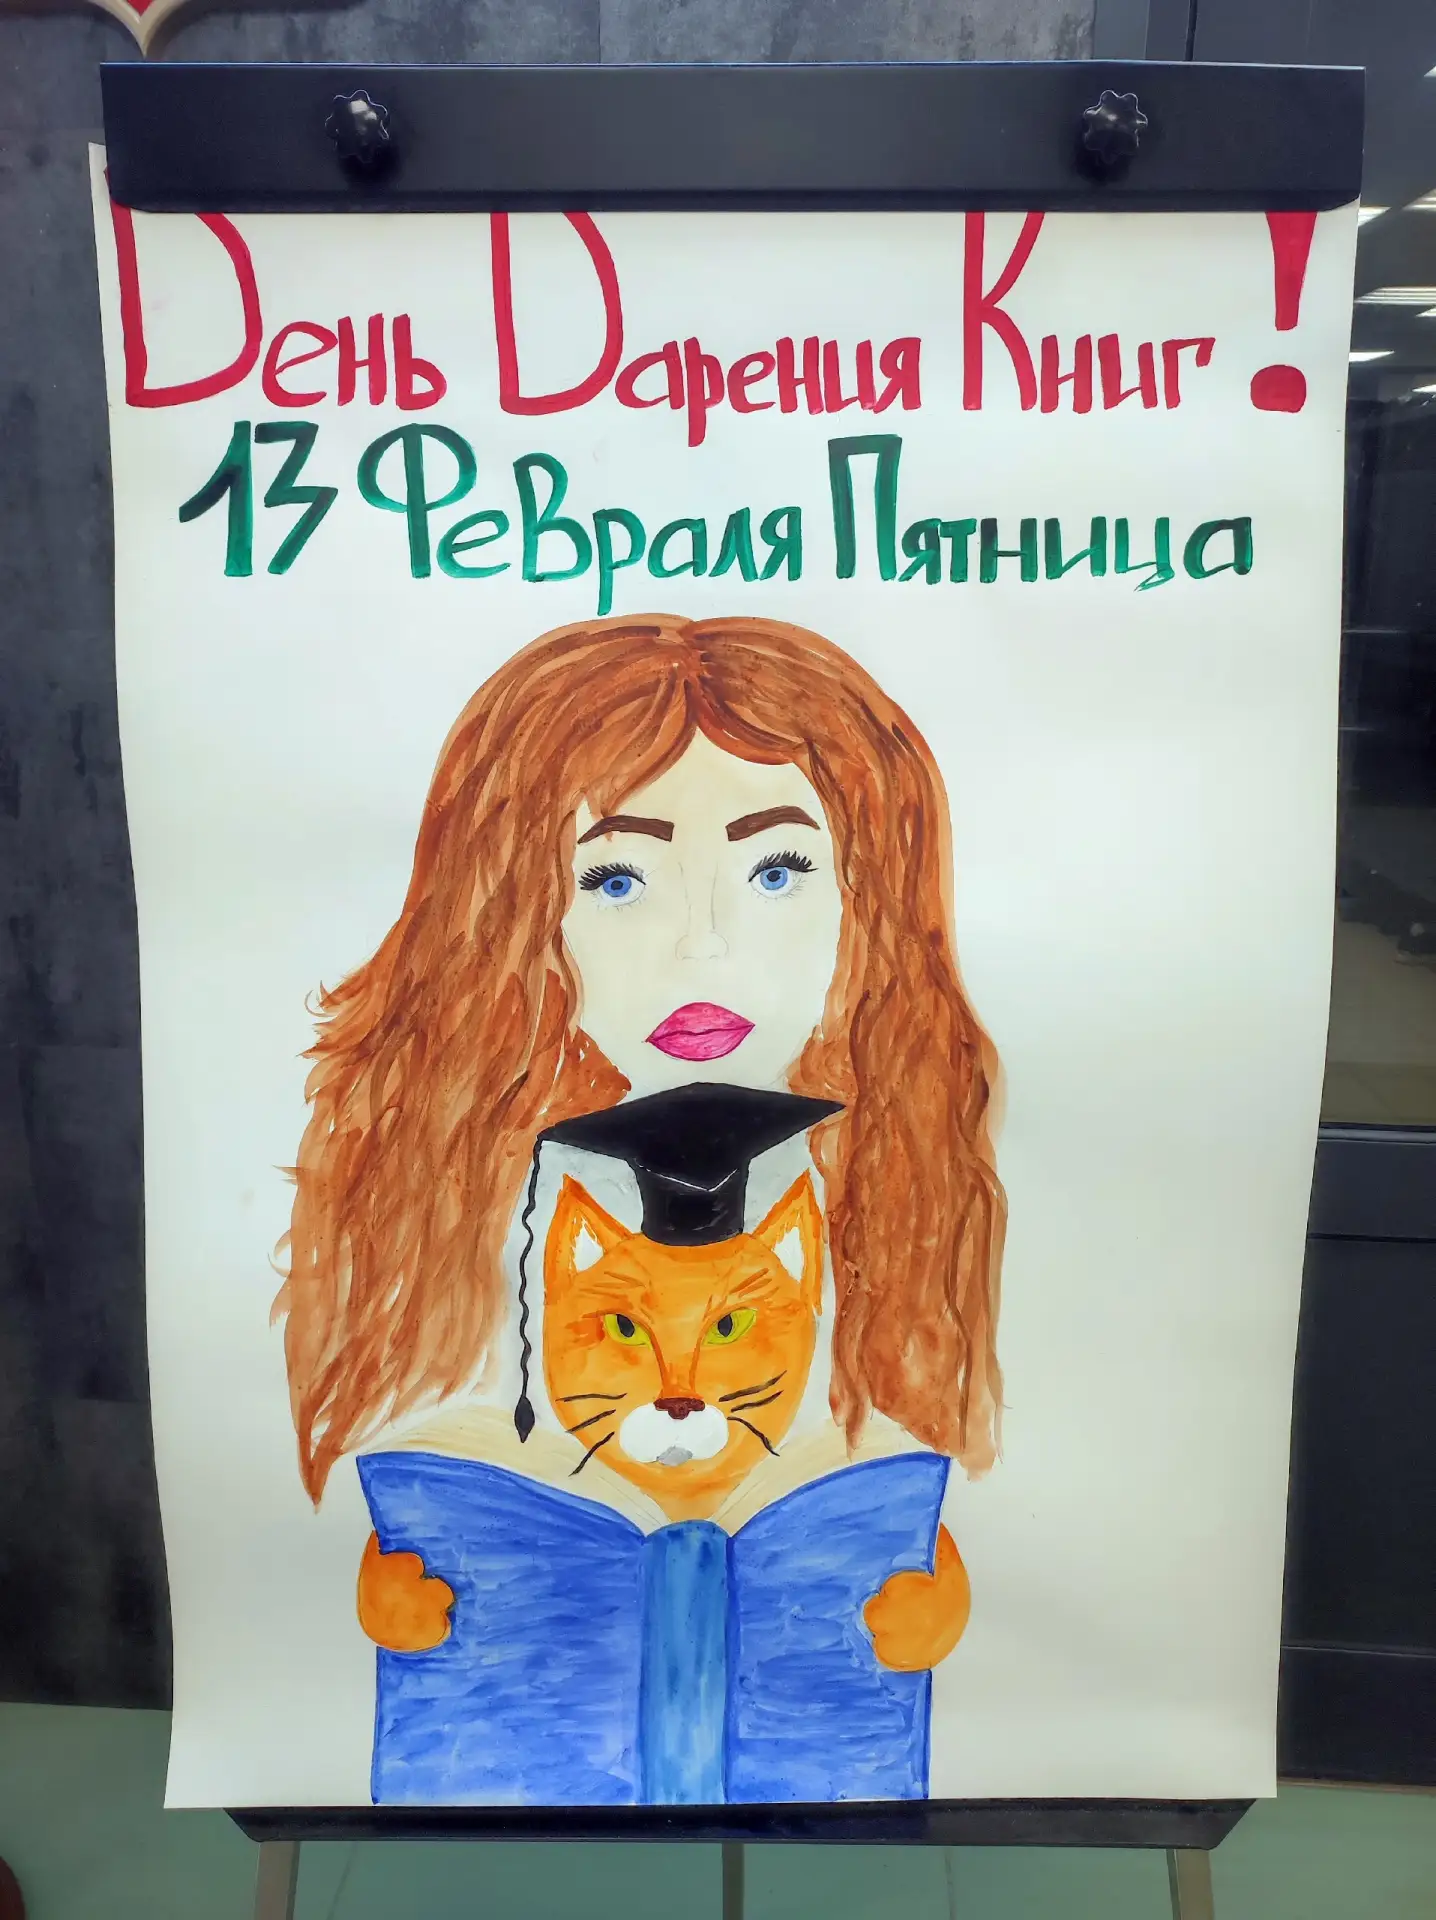 День Дарения Книг!
13 Февраля Пятница